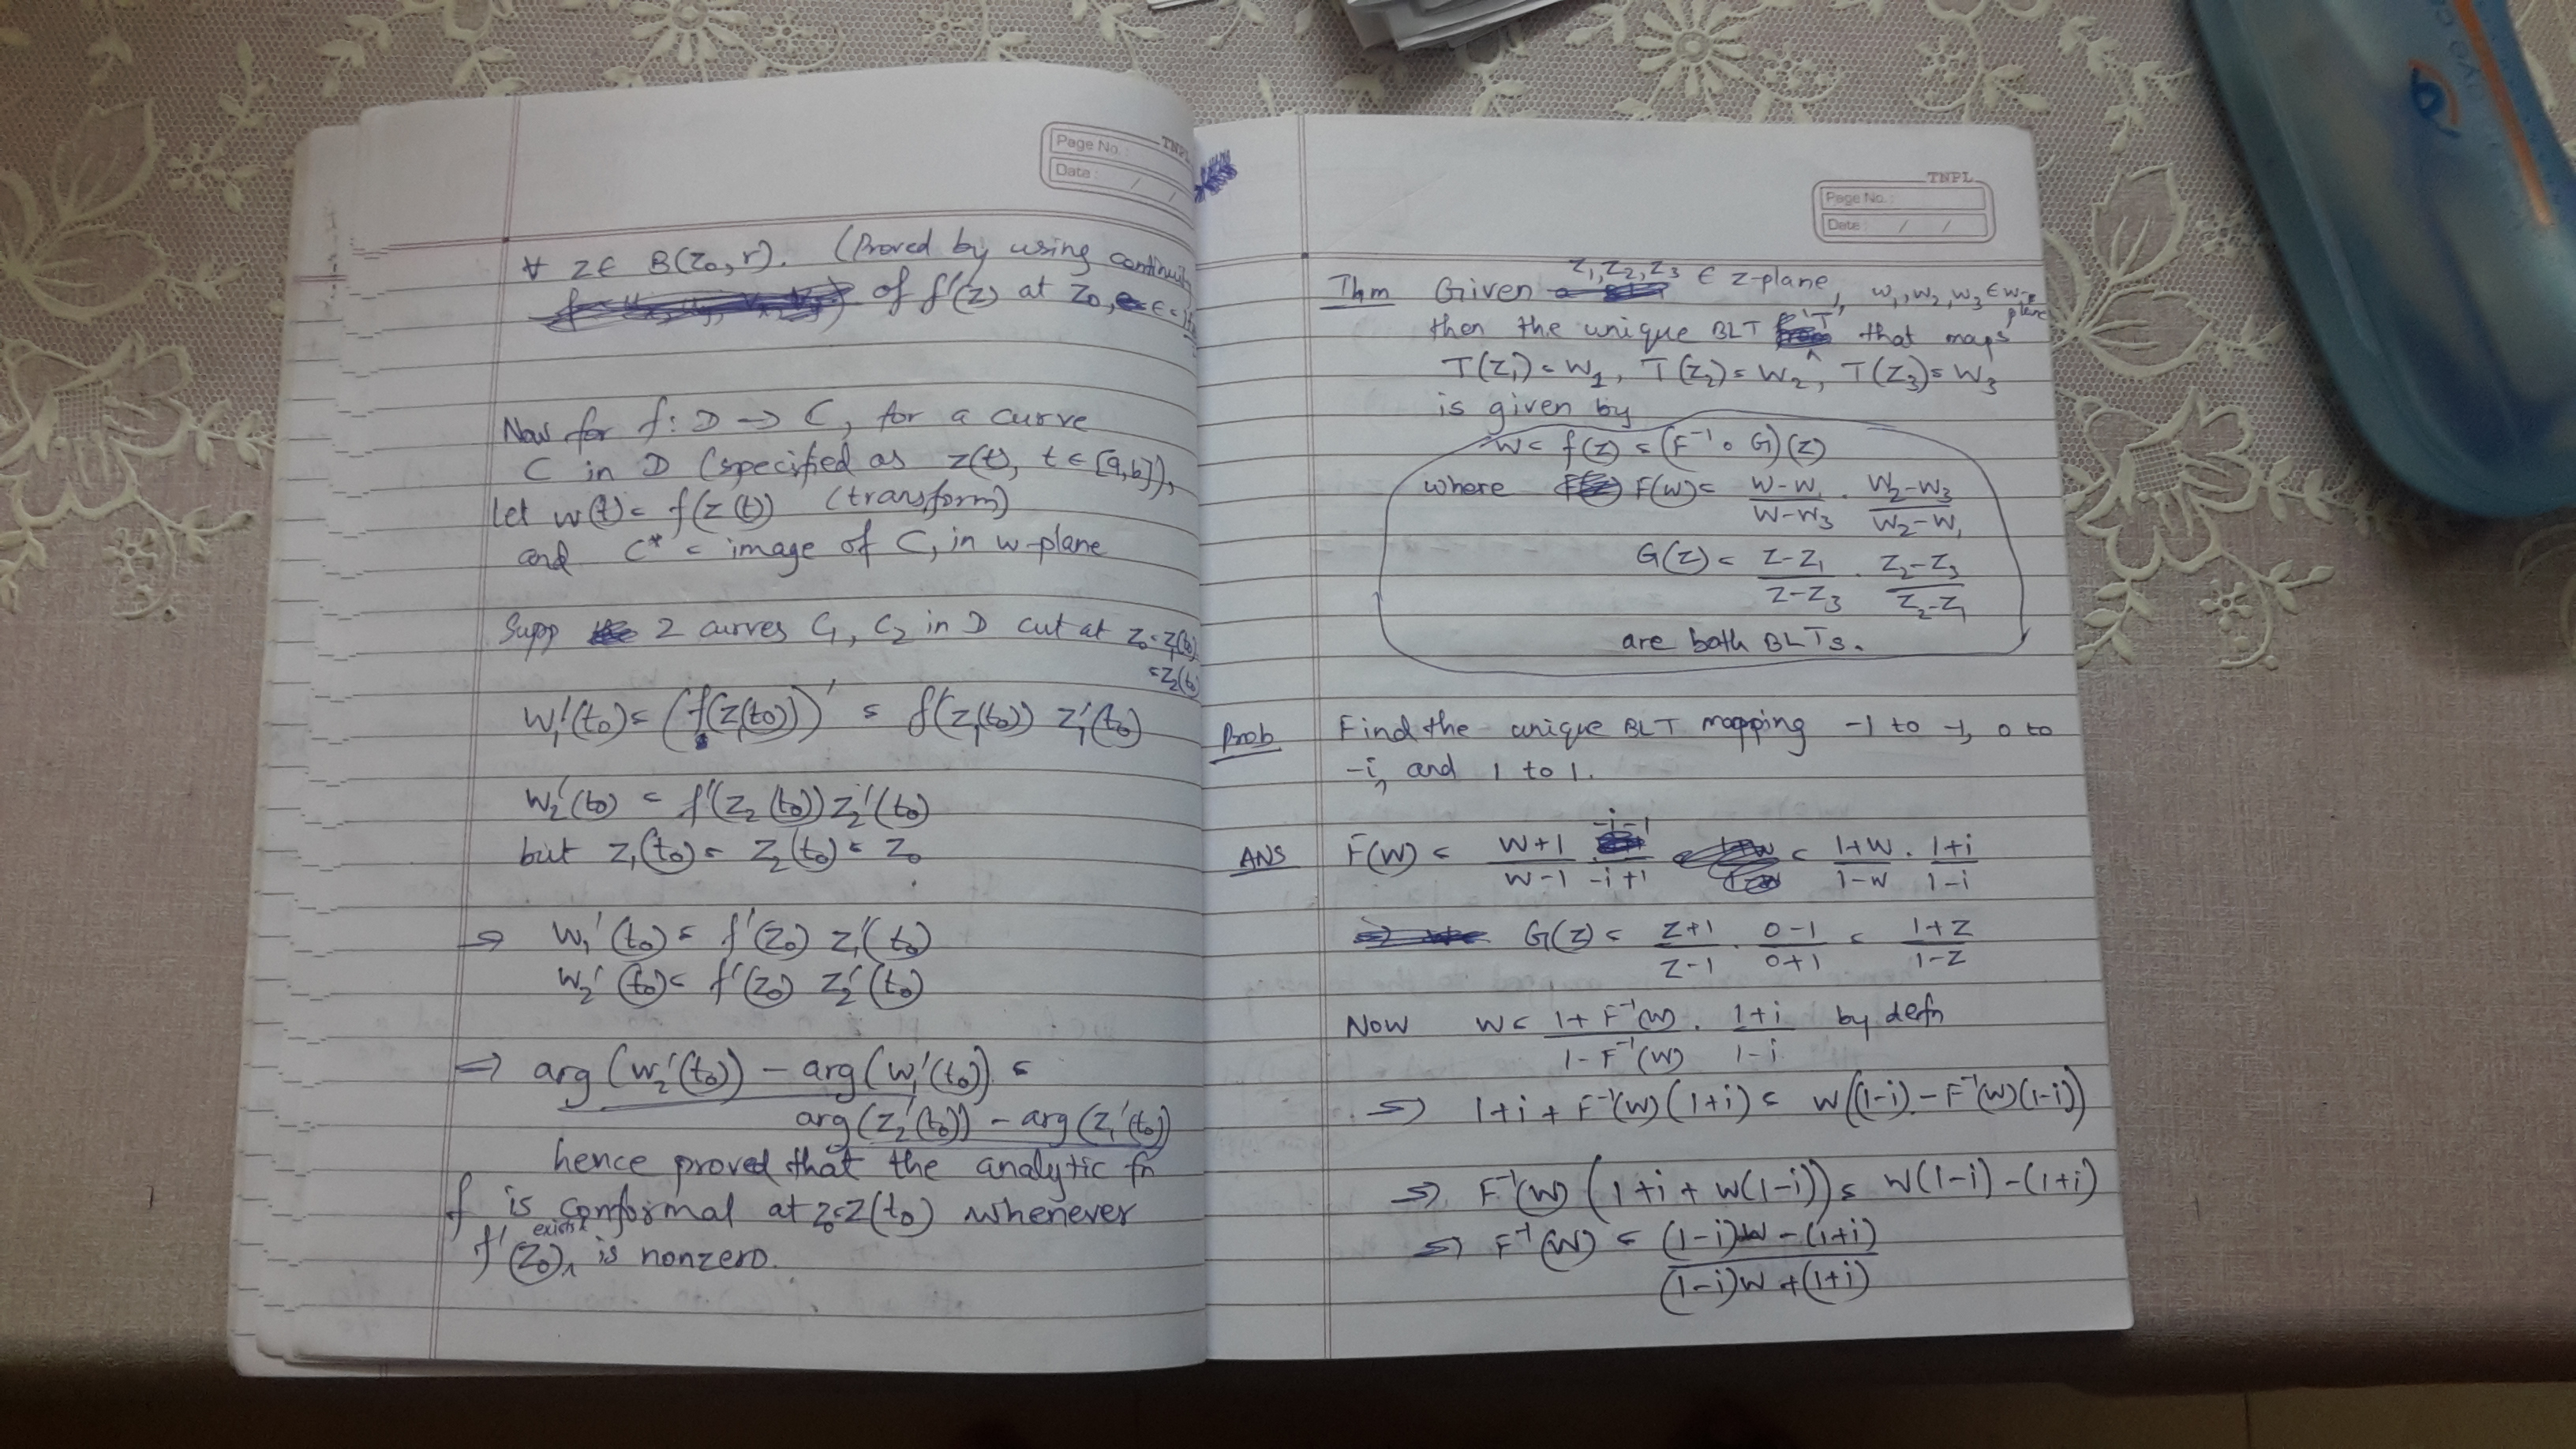 Page No. :
TNPL
Date : / /
∀ z ∈ B(z₀, r). (Proved by using
of f'(z) at z₀,
Now for f: D → C, for a curve
C in D (specified as z(t), t ∈ [a,b]),
let w(t) = f(z(t)) (transform)
and C* = image of C, in w-plane
Supp 2 curves C₁, C₂ in D cut at z₀ = z₁(t₀)
= z₂(t₀
w₁'(t₀) = (f(z₁(t₀)))' = f'(z₁(t₀)) z₁'(t₀)
w₂'(t₀) = f'(z₂(t₀)) z₂'(t₀)
but z₁(t₀) = z₂(t₀) = z₀
⇒ w₁'(t₀) = f'(z₀) z₁'(t₀)
w₂'(t₀) = f'(z₀) z₂'(t₀)
⇒ arg(w₂'(t₀)) – arg(w₁'(t₀)) =
arg(z₂'(t₀)) – arg(z₁'(t₀))
hence proved that the analytic fn
f is conformal at z₀=z(t₀) whenever
f'(z₀) exists & is nonzero.
TNPL
Page No. :
Date : / /
Thm Given z₁, z₂, z₃ ∈ z-plane, w₁, w₂, w₃ ∈ w-plane
then the unique BLT 'T' that maps
T(z₁) = w₁, T(z₂) = w₂, T(z₃) = w₃
is given by
w = f(z) = (F⁻¹ ∘ G)(z)
where F(w) = (w-w₁)/(w-w₃) · (w₂-w₃)/(w₂-w₁)
G(z) = (z-z₁)/(z-z₃) · (z₂-z₃)/(z₂-z₁)
are both BLTs.
Prob Find the unique BLT mapping -1 to -1, 0 to
-i, and 1 to 1.
ANS F(w) = (w+1)/(w-1) · (-i-1)/(-i+1) = (1+w)/(1-w) · (1+i)/(1-i)
G(z) = (z+1)/(z-1) · (0-1)/(0+1) = (1+z)/(1-z)
Now w = (1+F⁻¹(w))/(1-F⁻¹(w)) · (1+i)/(1-i) by defn
⇒ 1+i + F⁻¹(w)(1+i) = w((1-i) - F⁻¹(w)(1-i))
⇒ F⁻¹(w) (1+i + w(1-i)) = w(1-i) - (1+i)
⇒ F⁻¹(w) = ((1-i)w - (1+i))/((1-i)w + (1+i))